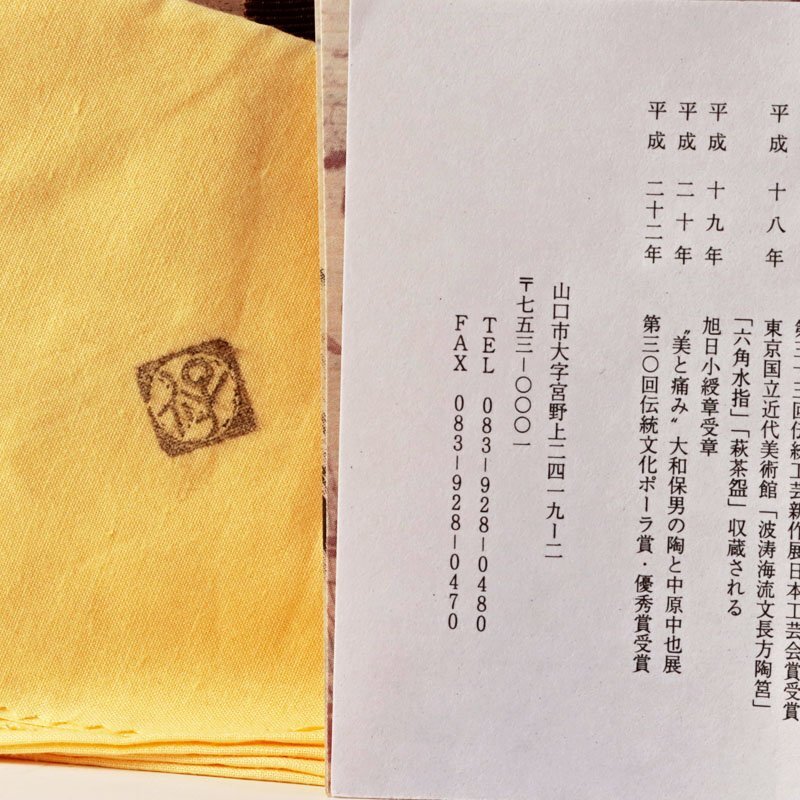 平成 十八年
第三十三回伝統工芸新作展日本工芸会賞受賞
東京国立近代美術館「波涛海流文長方陶筥」
「六角水指」「萩茶盌」収蔵される
平成 十九年
旭日小綬章受章
平成 二十年
〝美と痛み〟大和保男の陶と中原中也展
平成 二十二年
第三〇回伝統文化ポーラ賞・優秀賞受賞
山口市大字宮野上二四一九ー二
〒七五三ー〇〇〇一
TEL 083ー928ー0480
FAX 083ー928ー0470